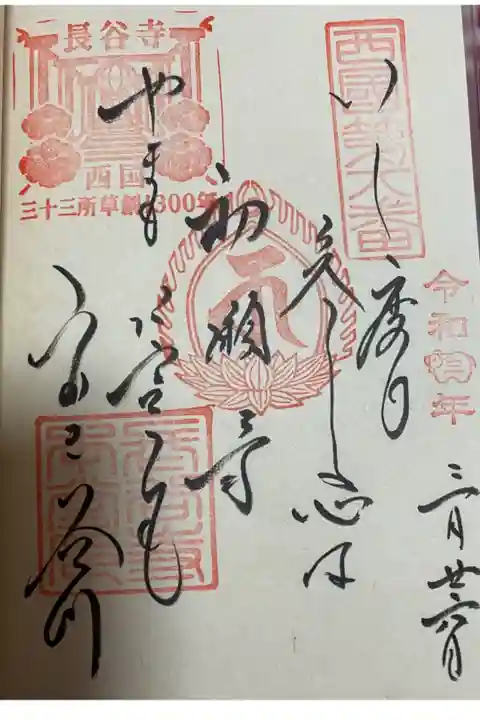 西國第八番
令和四年
三月廿六日
いく度も
参る心は
初瀬寺
やまも
ふかき谷川
長谷寺
西国
三十三所草創1300年